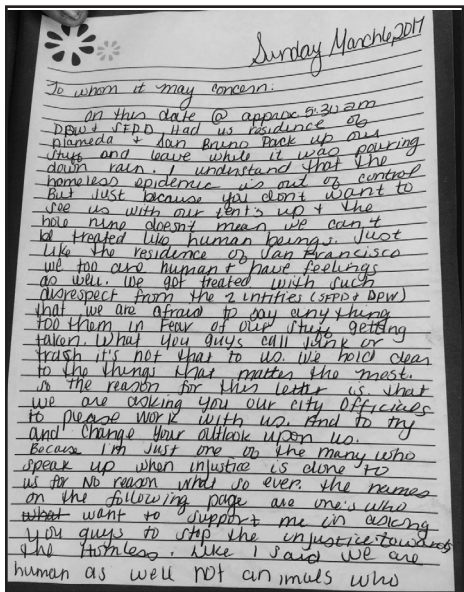 Sunday March 6, 2017
To whom it may concern:
on this date @ approx 5:30 am
DPW & SFPD Had us residence of
Alameda & San Bruno Pack up our
stuff and leave while it was pouring
down rain. I understand that the
homeless epidemic is out of control
But just because you don't want to
see us with our tent's up & the
hole nine doesn't mean we can't
be treated like human beings. Just
like the residence of San Francisco
we too are human & have feelings
as well. We got treated with such
disrespect from the 2 entities (SFPD & DPW)
that we are afraid to say any thing
too them in Fear of our stuff getting
taken. What you guys call junk or
trash it's not that to us. We hold dear
to the things that matter the most.
so the reason for this letter is that
we are asking you our city officials
to please work with us. And to try
and change your outlook upon us.
Because I'm just one of the many who
speak up when injustice is done to
us for No reason what so ever. the names
on the following page are one's who
what want to support me in asking
you guys to stop the injustice towards
the Homless. Like I said we are
human as well not animals who